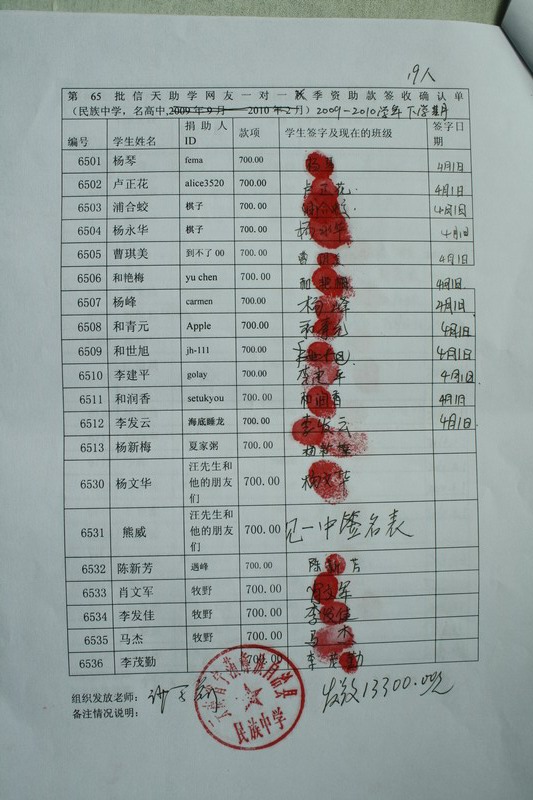 19人
第 65 批信天助学网友一对一秋季资助款签收确认单
(民族中学，名高中,2009年9月——2010年2月) 2009-2010学年下学期
编号 学生姓名 捐助人ID 款项 学生签字及现在的班级 签字日期
6501 杨琴 fema 700.00 4月1日
6502 卢正花 alice3520 700.00 卢正花 4月1日
6503 浦合蛟 棋子 700.00 浦合蛟 4月1日
6504 杨永华 棋子 700.00 杨永华 4月1日
6505 曹琪美 到不了00 700.00 曹琪美 4月1日
6506 和艳梅 yu chen 700.00 和艳梅 4月1日
6507 杨峰 carmen 700.00 杨峰 4月1日
6508 和青元 Apple 700.00 和青元 4月1日
6509 和世旭 jh-111 700.00 和世旭 4月1日
6510 李建平 golay 700.00 李建平 4月1日
6511 和润香 setukyou 700.00 和润香 4月1日
6512 李发云 海底睡龙 700.00 李发云 4月1日
6513 杨新梅 夏家粥 700.00 杨新梅
6530 杨文华 汪先生和他的朋友们 700.00 杨文华
6531 熊威 汪先生和他的朋友们 700.00 见一中签名表
6532 陈新芳 遇峰 700.00 陈新芳
6533 肖文军 牧野 700.00 肖文军
6534 李发佳 牧野 700.00 李发佳
6535 马杰 牧野 700.00 马杰
6536 李茂勤 700.00 李茂勤
组织发放老师：
发放13300.00元
备注情况说明：
民族中学